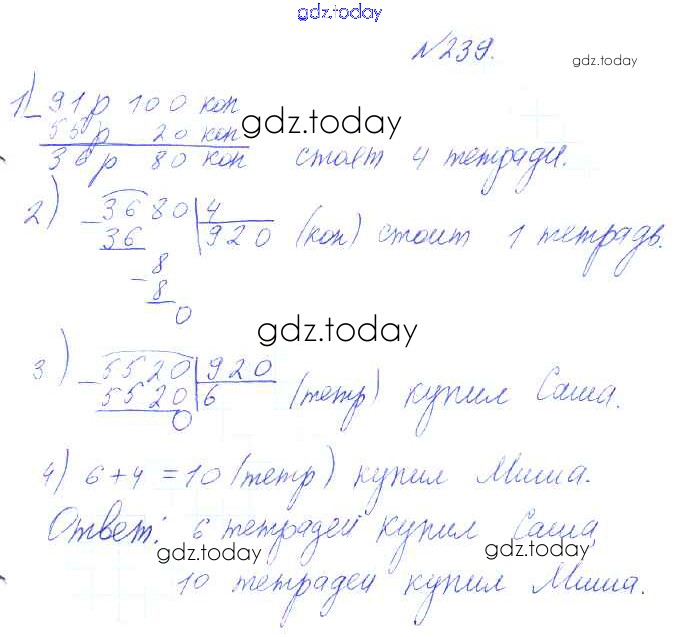 gdz.today
№239.
gdz.today
1) 91р 100 коп
55р 20 коп
gdz.today
36р 80 коп стоят 4 тетради.
2) 3680 4
36 920 (коп) стоит 1 тетрадь.
8
8
0
gdz.today
3) 5520 920
5520 6 (тетр) купил Саша.
0
4) 6+4=10 (тетр) купил Миша.
Ответ: 6 тетрадей купил Саша,
gdz.today gdz.today
10 тетрадей купил Миша.